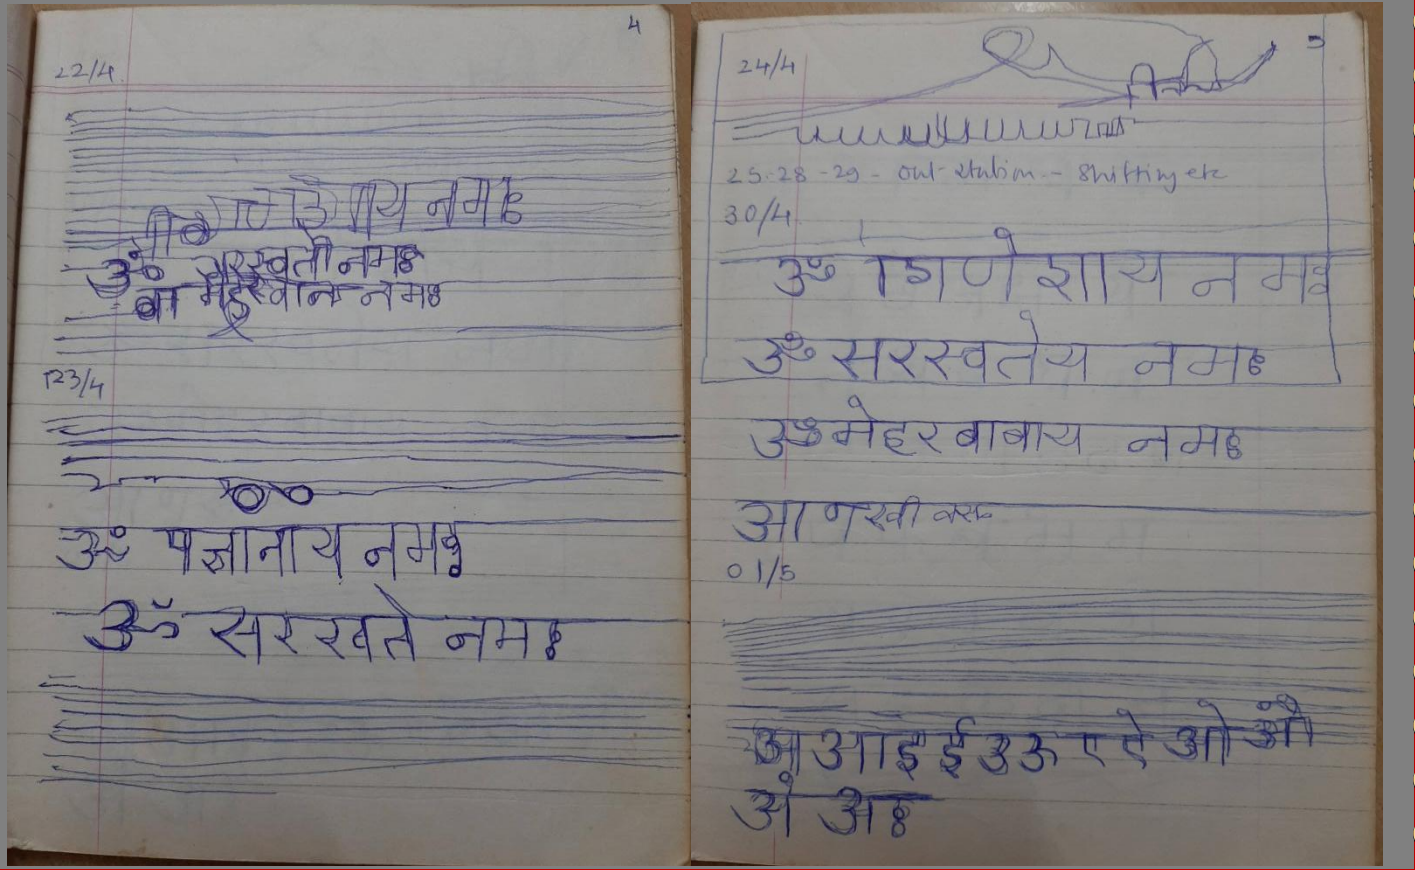 4
22/4
नमः
ॐ सरस्वती नमः
बा मेहरबान नमः
23/4
ॐ पज्ञानाय नमः
ॐ सरस्वते नमः
24/4
25-28-29 - out station - shifting etc
30/4
ॐ गणेशाय नमः
ॐ सरस्वतेय नमः
ॐ मेहरबाबाय नमः
आणखी
01/5
अ आ इ ई उ ऊ ए ऐ ओ औ
अं अः